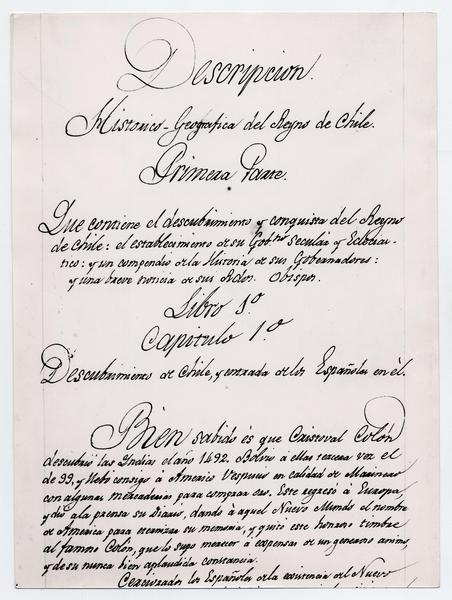 Descripcion.
Historico-Geografica del Reyno de Chile.
Primera Parte.
Que contiene el descubrimiento y conquista del Reyno
de Chile: el establecimiento de su Gob.no secular y Eclecias-
tico: y un compendio de la Historia de sus Gobernadores:
y una breve noticia de sus Rdos. Obispos.
Libro 1.º
Capitulo 1.º
Descubrimiento de Chile, y entrada de los Españoles en èl.
Bien sabido és que Cristoval Colón
descubrió las Yndias el año 1492. Bolvió à ellas tercera vez el
de 99, y llebo consigo à Americo Vespucio en calidad de Marinero
con algunas mercaderias para comprar oro. Este regresó à Europa,
y dió ala prensa su Diario, dando à aquel Nuevo Mundo el nombre
de America para eternizar su memoria, y quitó este honroso timbre
al famoso Colón, que lo supo merecer à expensas de un generoso animo,
y de su nunca bien aplaudida constancia.
Cerciorados los Españoles de la existencia del Nuevo